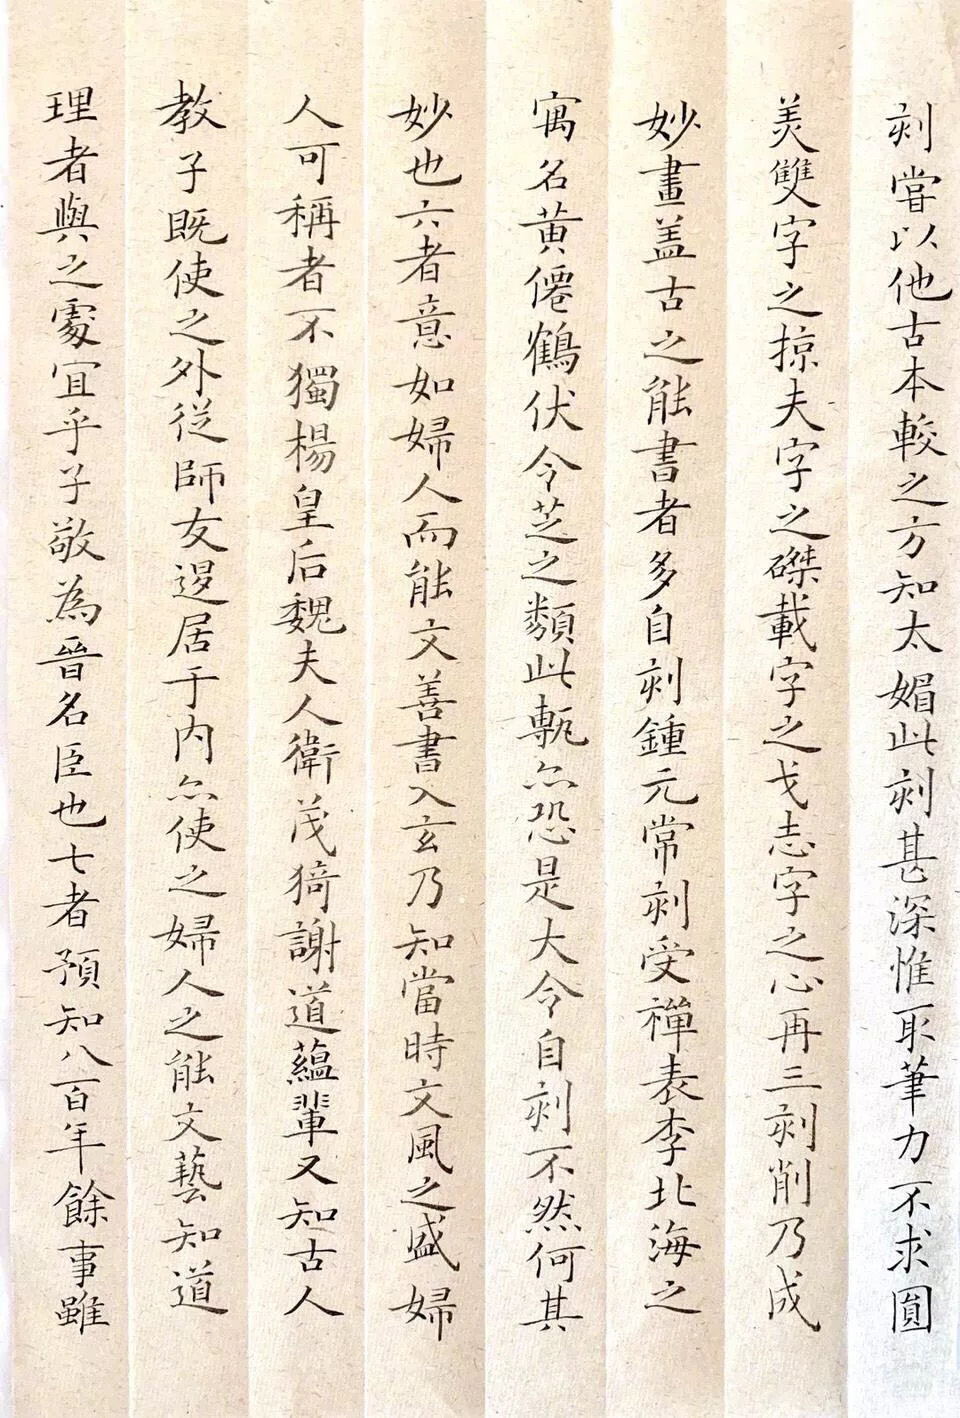 刻嘗以他古本較之方知太媚此刻甚深惟取筆力不求圓
美雙字之掠夫字之磔載字之戈志字之心再三刻削乃成
妙畫盖古之能書者多自刻鍾元常刻受禪表李北海之
寓名黄僊鶴伏令芝之類此甎亦恐是大令自刻不然何其
妙也六者意如婦人而能文善書入玄乃知當時文風之盛婦
人可稱者不獨楊皇后魏夫人衛茂猗謝道藴輩又知古人
教子既使之外從師友退居于内亦使之婦人之能文藝知道
理者與之處宜乎子敬為晉名臣也七者預知八百年餘事雖